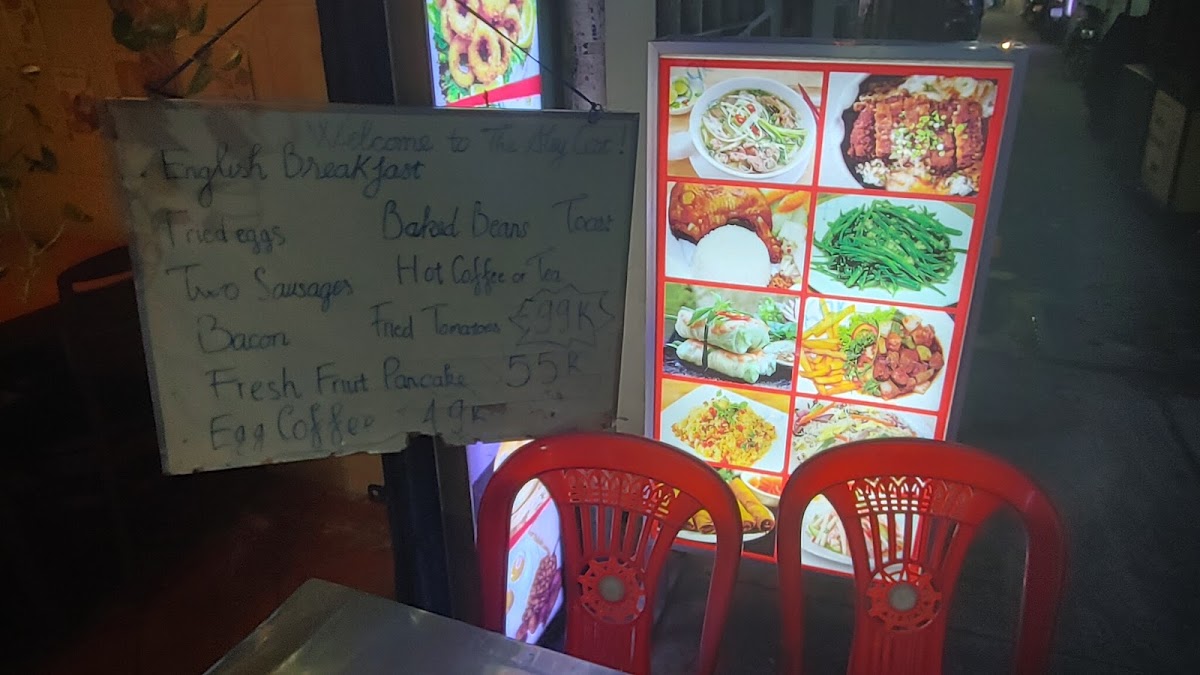 Welcome to The
English Breakfast
Fried eggs Baked Beans
Two Sausages Hot Coffee or Tea
Bacon Fried Tomatoes 99K
Fresh Fruit Pancake 55K
Egg Coffee 49K